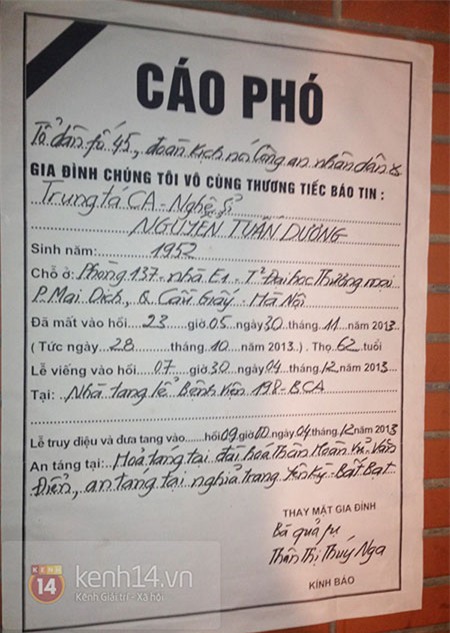 CÁO PHÓ
Tổ dân fố 45, đoàn kịch nói Công an nhân dân &
GIA ĐÌNH CHÚNG TÔI VÔ CÙNG THƯƠNG TIẾC BÁO TIN :
Trung tá CA - Nghệ sĩ
NGUYỄN TUẤN DƯƠNG
Sinh năm: 1952
Chỗ ở: Phòng 137 - nhà E1 - T² Đại học Thương mại
P. Mai Dịch, Q Cầu Giấy - Hà Nội
Đã mất vào hồi 23 giờ 05 ngày 30 tháng 11 năm 2013
( Tức ngày 28 tháng 10 năm 2013 ) . Thọ 62 tuổi
Lễ viếng vào hồi 07 giờ 30 ngày 04 tháng 12 năm 2013
Tại: Nhà tang lễ Bệnh viện 198 - BCA
Lễ truy điệu và đưa tang vào hồi 09 giờ 00 ngày 04 tháng 12 năm 2013
An táng tại: Hoả táng tại đài hoá thân Hoàn Vũ - Văn
Điển, an táng tại nghĩa trang Yên Kỳ - Bất Bạt
THAY MẶT GIA ĐÌNH
Bà quả fụ
Thân Thị Thúy Nga
KÍNH BÁO
KÊNH 14 kenh14.vn
Kênh Giải trí - Xã hội